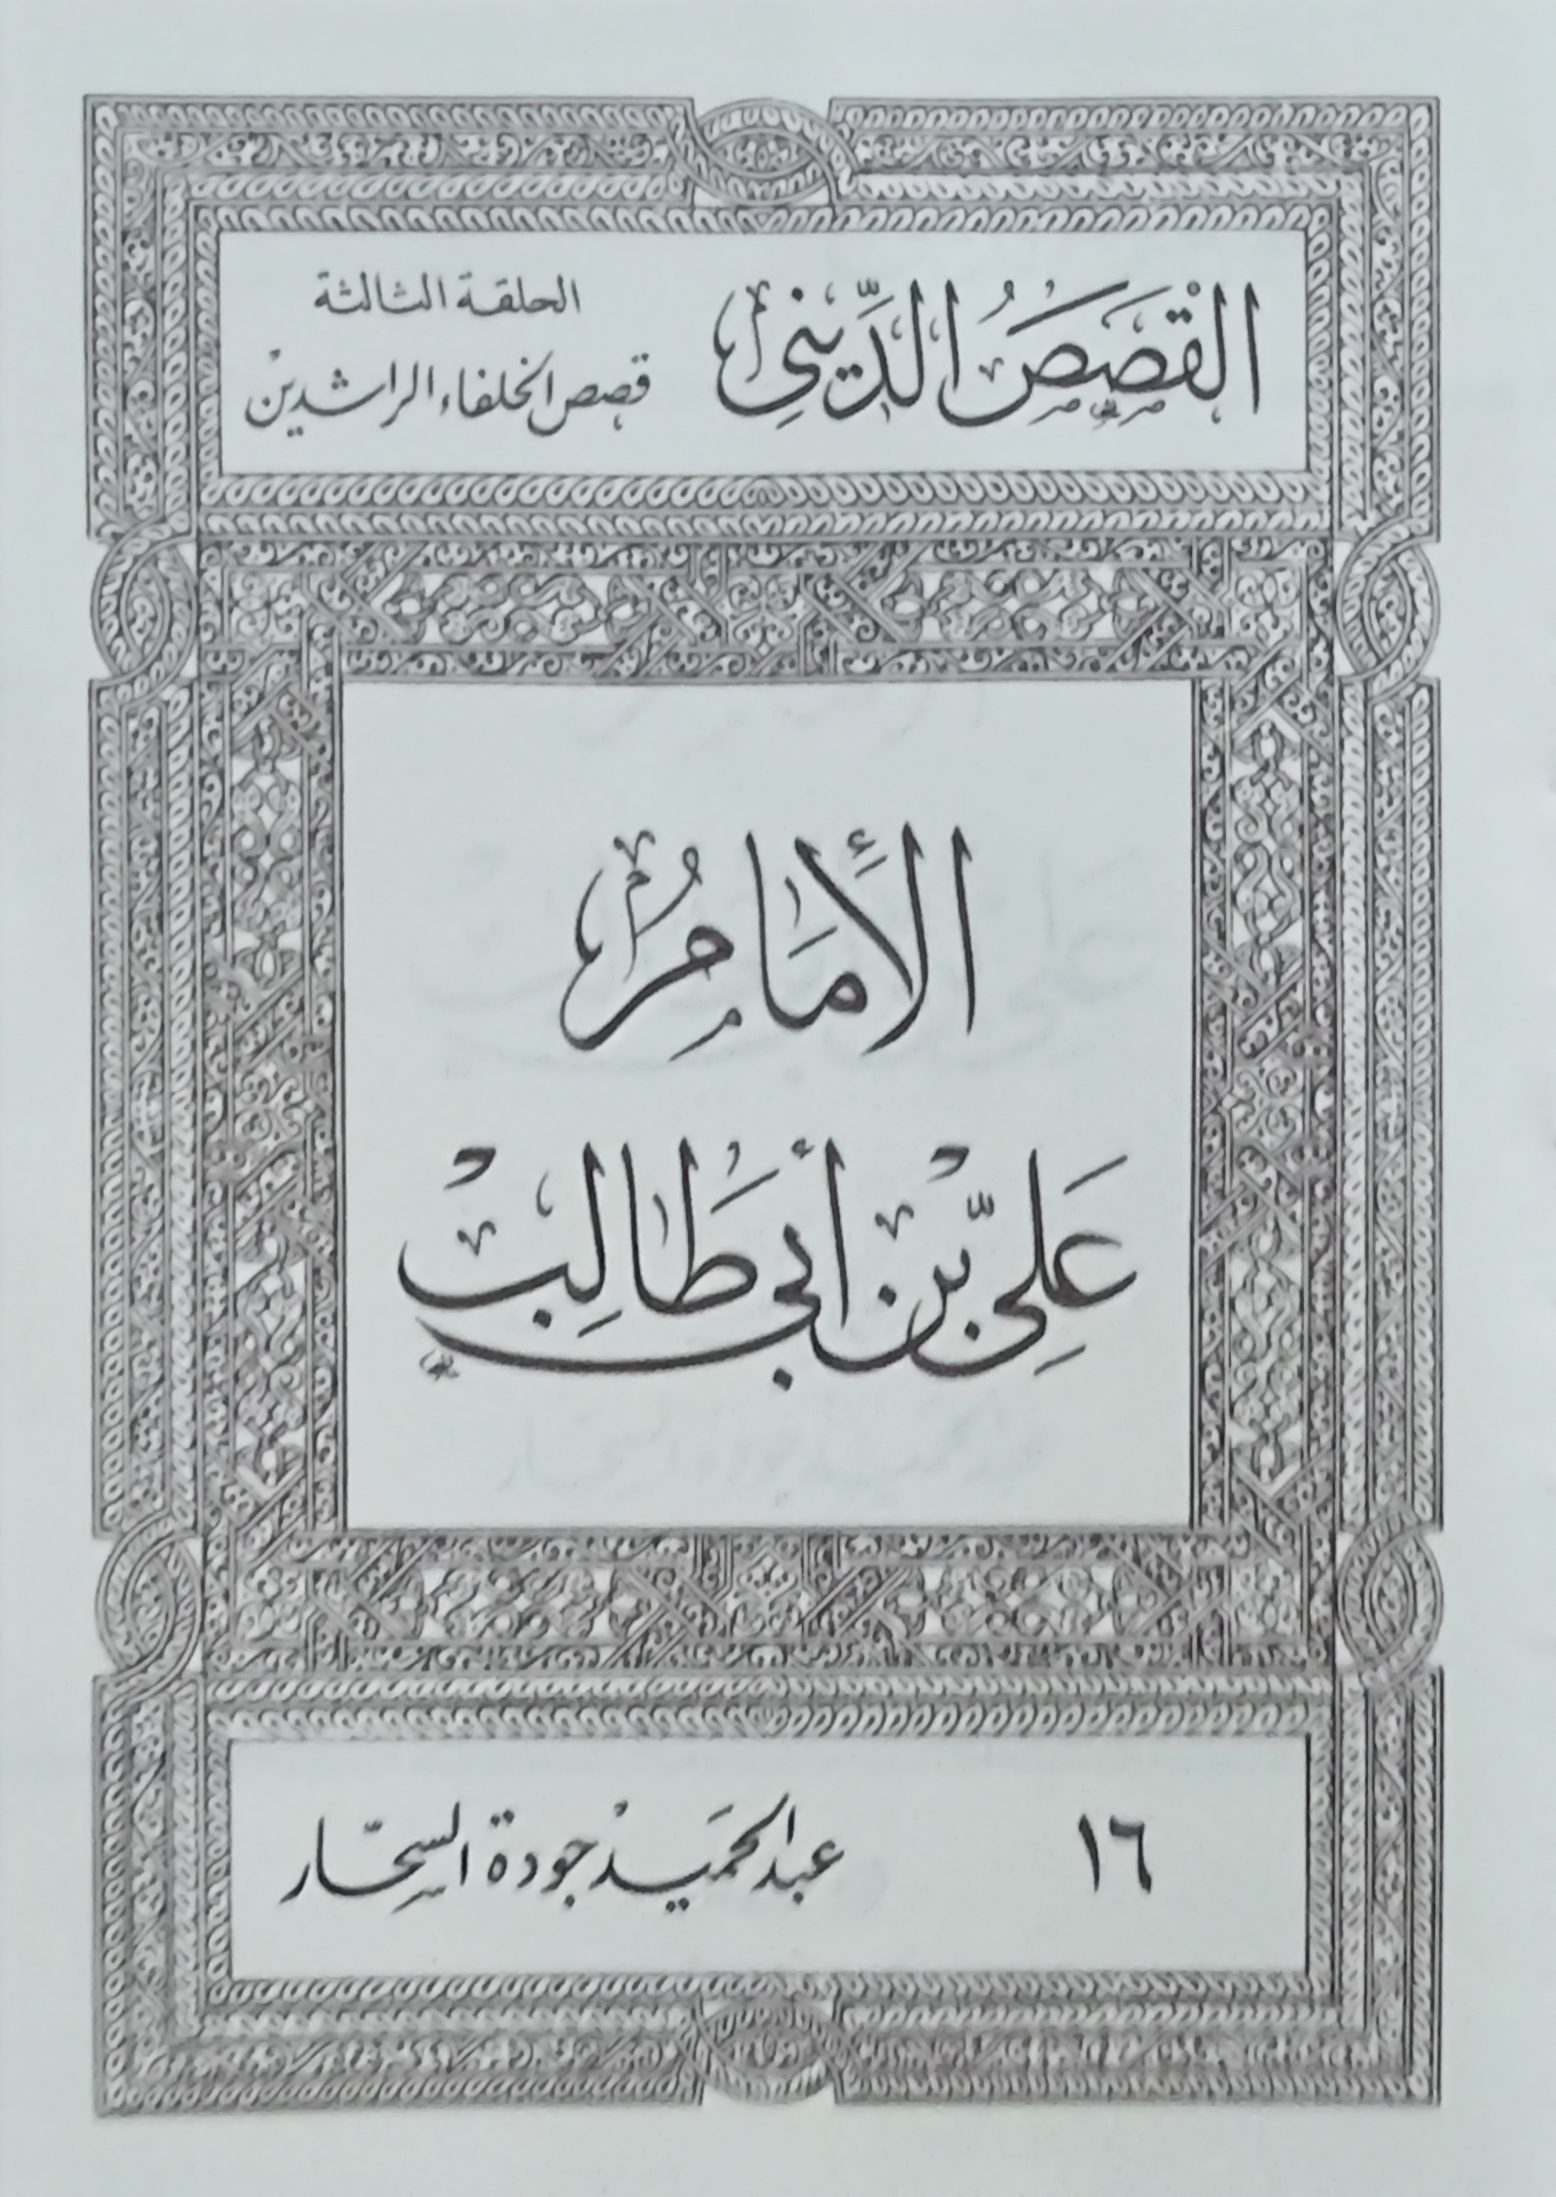 القصص الديني
الحلقة الثالثة
قصص الخلفاء الراشدين
الإمام
علي بن أبي طالب
١٦
عبد الحميد جودة السحار